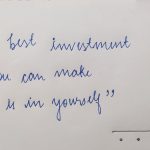 best investment
ou can make
is in yourself”